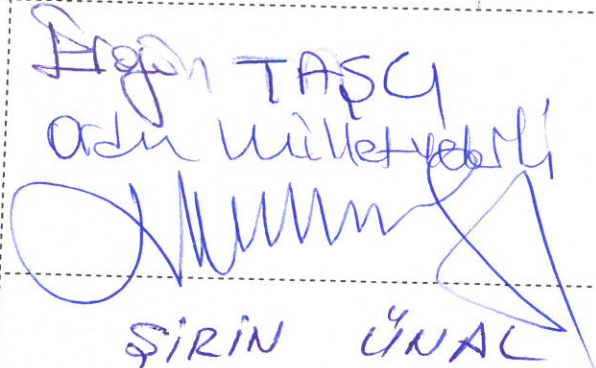 Ergün TAŞCI
Ordu Milletvekili
ŞİRİN ÜNAL